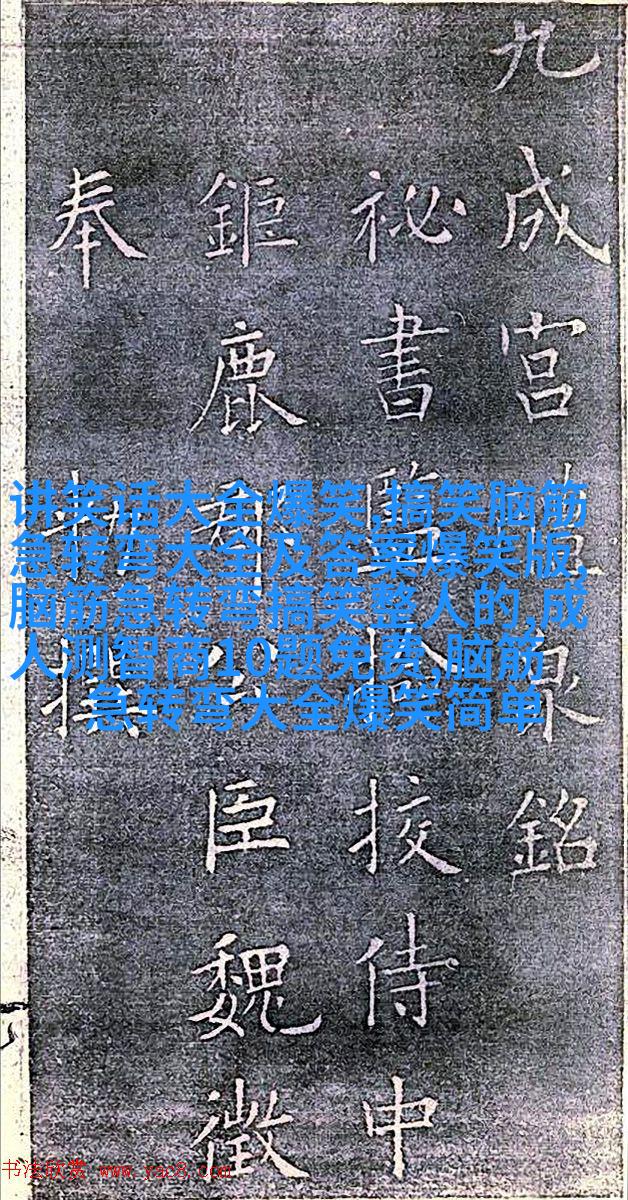 九成宮醴泉銘
祕書監檢挍侍中
鉅鹿郡公臣魏徵
奉勑撰
讲笑话大全爆笑,搞笑脑筋
急转弯大全及答案爆笑版,
脑筋急转弯搞笑整人的,成
人测智商10题免费,脑筋
急转弯大全爆笑简单
书法欣赏 www.yac8.com